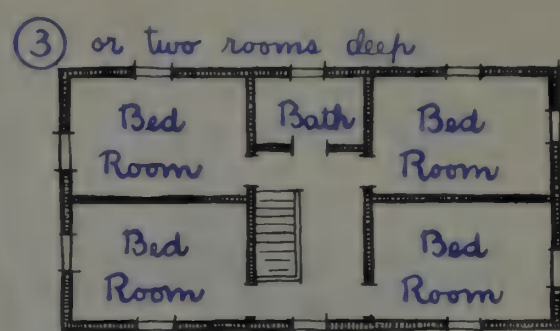 ③ or two rooms deep
Bed
Room
Bath
Bed
Room
Bed
Room
Bed
Room